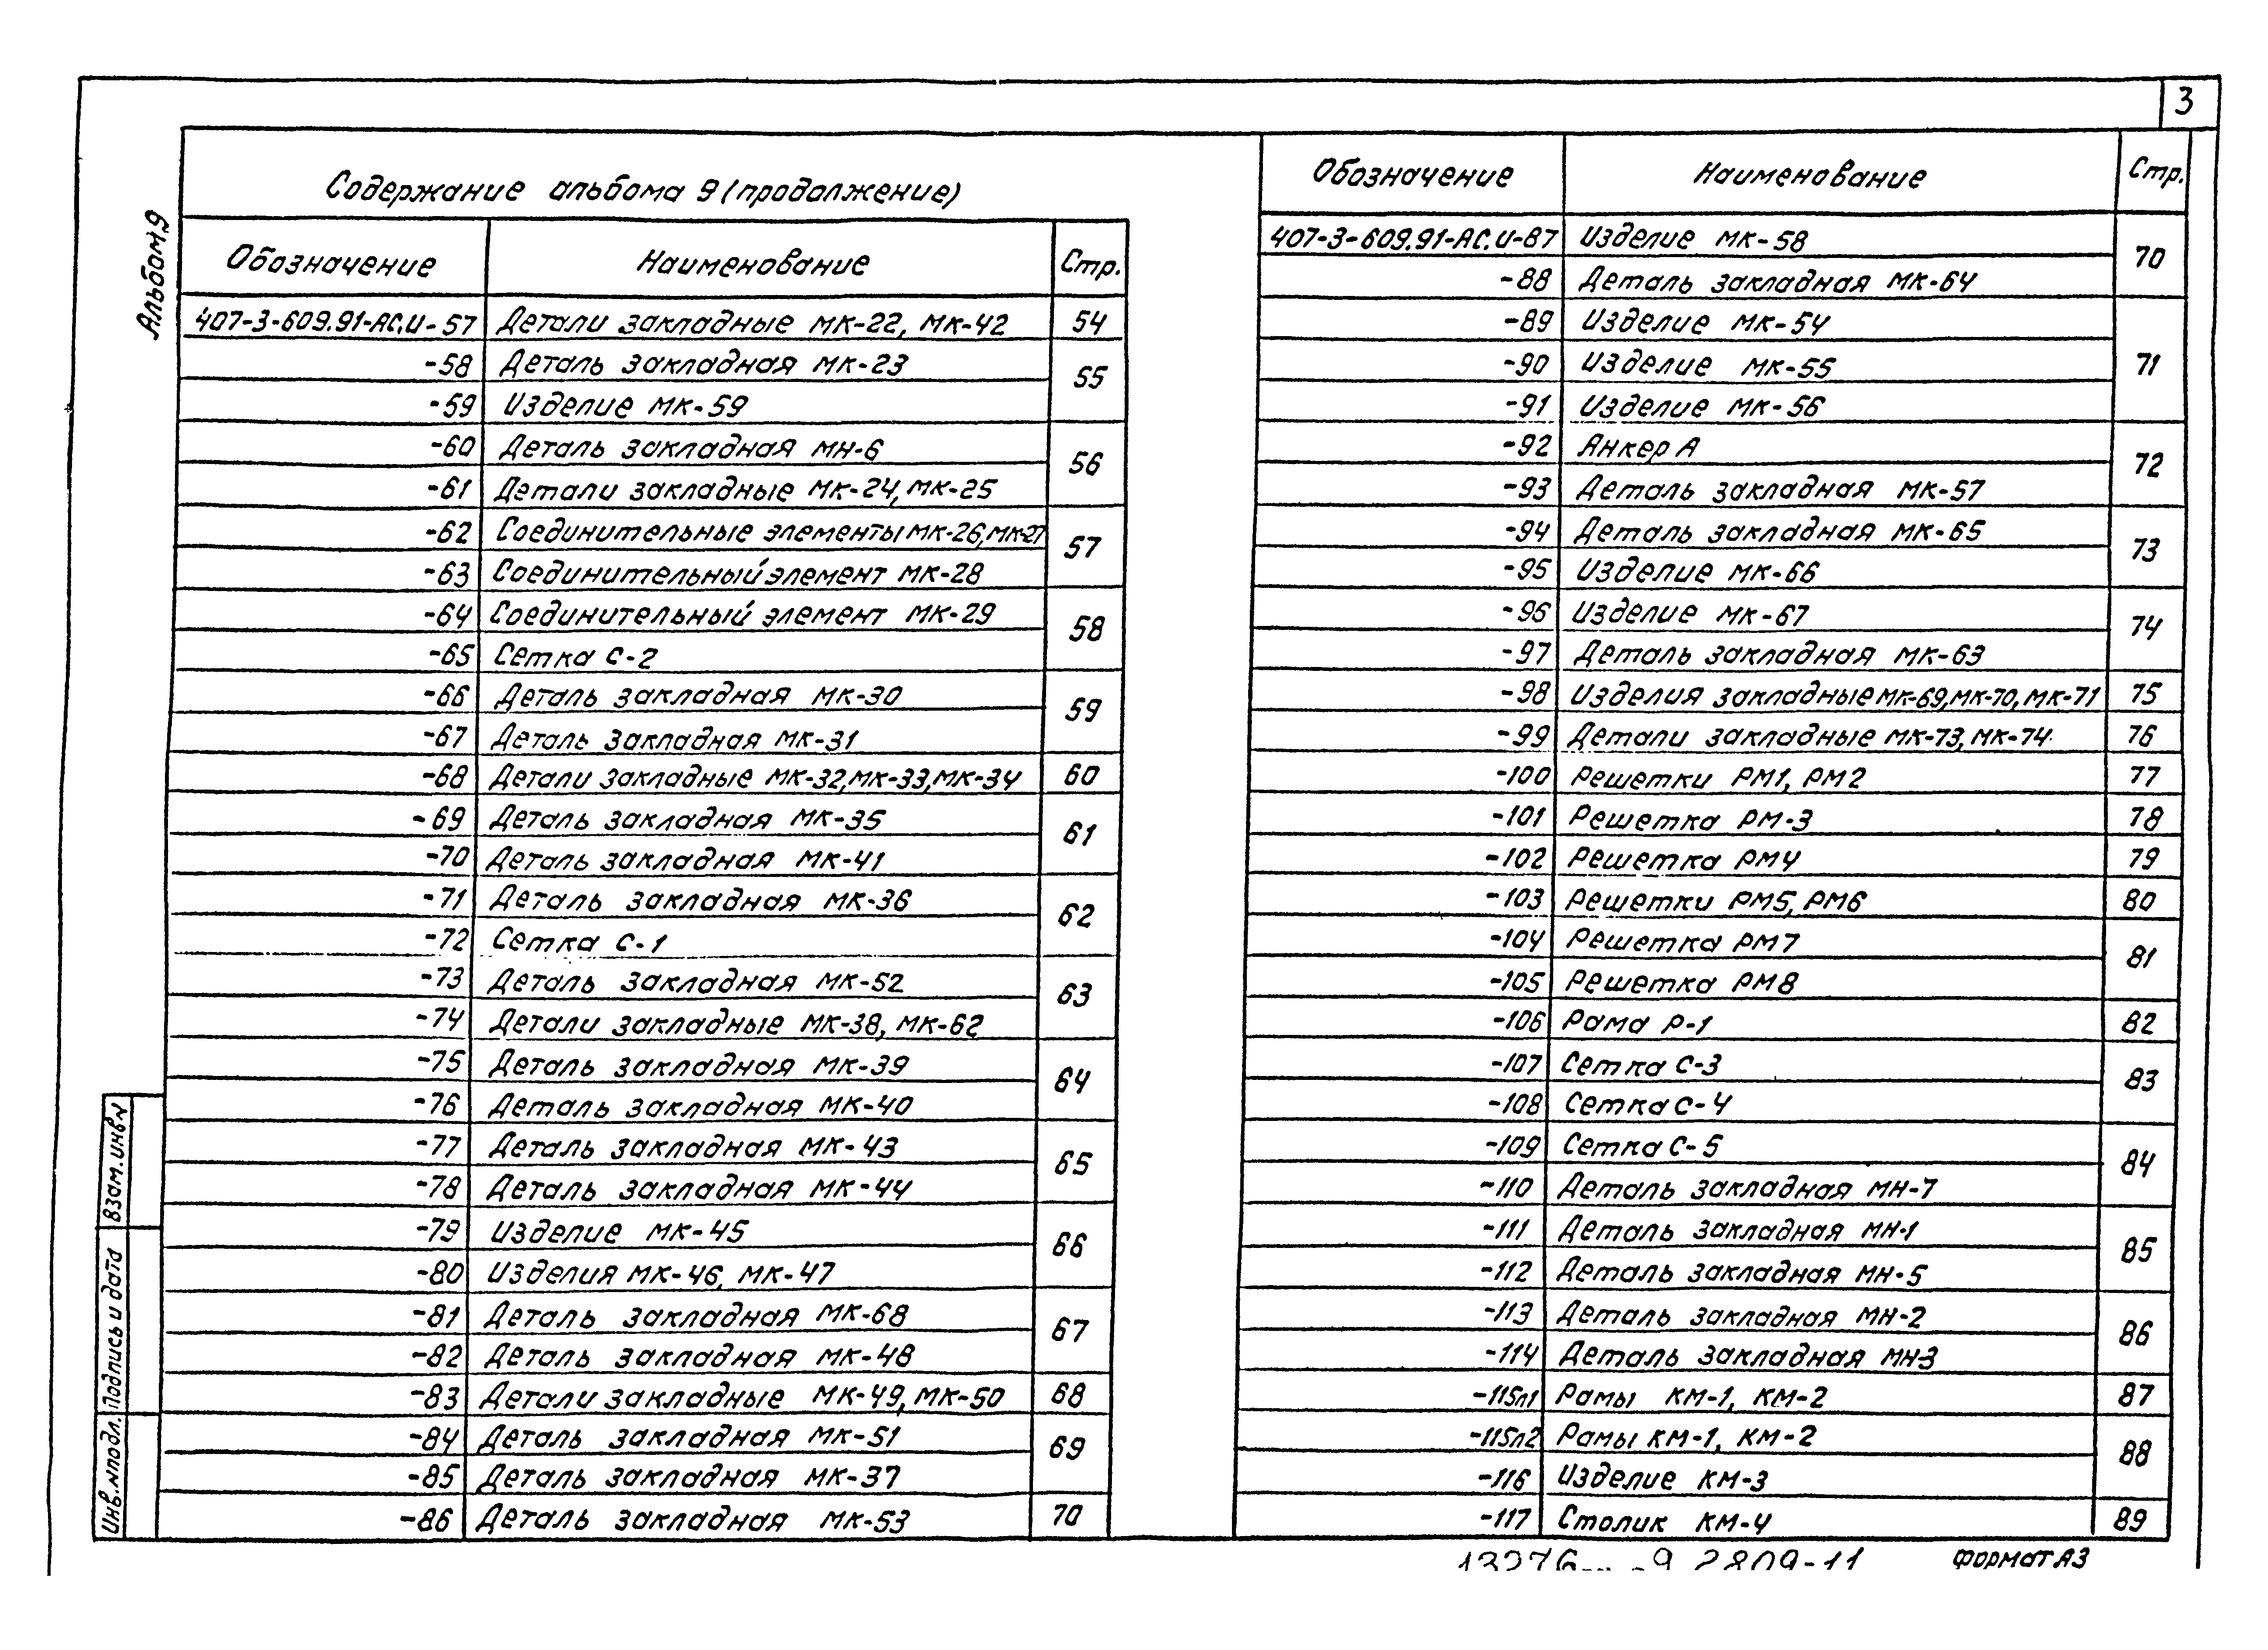 3
Альбом 9
Содержание альбома 9 (продолжение)
Обозначение Наименование Стр.
407-3-609.91-АС.И-57 Детали закладные МК-22, МК-42 54
-58 Деталь закладная МК-23 55
-59 Изделие МК-59
-60 Деталь закладная МН-6 56
-61 Детали закладные МК-24, МК-25
-62 Соединительные элементы МК-26, МК-27 57
-63 Соединительный элемент МК-28
-64 Соединительный элемент МК-29 58
-65 Сетка С-2
-66 Деталь закладная МК-30 59
-67 Деталь закладная МК-31
-68 Детали закладные МК-32, МК-33, МК-34 60
-69 Деталь закладная МК-35 61
-70 Деталь закладная МК-41
-71 Деталь закладная МК-36 62
-72 Сетка С-1
-73 Деталь закладная МК-52 63
-74 Детали закладные МК-38, МК-62
-75 Деталь закладная МК-39 64
-76 Деталь закладная МК-40
-77 Деталь закладная МК-43 65
-78 Деталь закладная МК-44
-79 Изделие МК-45 66
-80 Изделия МК-46, МК-47
-81 Деталь закладная МК-68 67
-82 Деталь закладная МК-48
-83 Детали закладные МК-49, МК-50 68
-84 Деталь закладная МК-51 69
-85 Деталь закладная МК-37
-86 Деталь закладная МК-53 70
Обозначение Наименование Стр.
407-3-609.91-АС.И-87 Изделие МК-58 70
-88 Деталь закладная МК-64
-89 Изделие МК-54 71
-90 Изделие МК-55
-91 Изделие МК-56
-92 Анкер А 72
-93 Деталь закладная МК-57
-94 Деталь закладная МК-65 73
-95 Изделие МК-66
-96 Изделие МК-67 74
-97 Деталь закладная МК-63
-98 Изделия закладные МК-69, МК-70, МК-71 75
-99 Детали закладные МК-73, МК-74 76
-100 Решетки РМ1, РМ2 77
-101 Решетка РМ-3 78
-102 Решетка РМ4 79
-103 Решетки РМ5, РМ6 80
-104 Решетка РМ7 81
-105 Решетка РМ8
-106 Рама Р-1 82
-107 Сетка С-3 83
-108 Сетка С-4
-109 Сетка С-5 84
-110 Деталь закладная МН-7
-111 Деталь закладная МН-1 85
-112 Деталь закладная МН-5
-113 Деталь закладная МН-2 86
-114 Деталь закладная МН-3
-115л1 Рамы КМ-1, КМ-2 87
-115л2 Рамы КМ-1, КМ-2 88
-116 Изделие КМ-3
-117 Столик КМ-4 89
Взам. инв.№
Подпись и дата
Инв.№подл.
2809-11
Формат А3